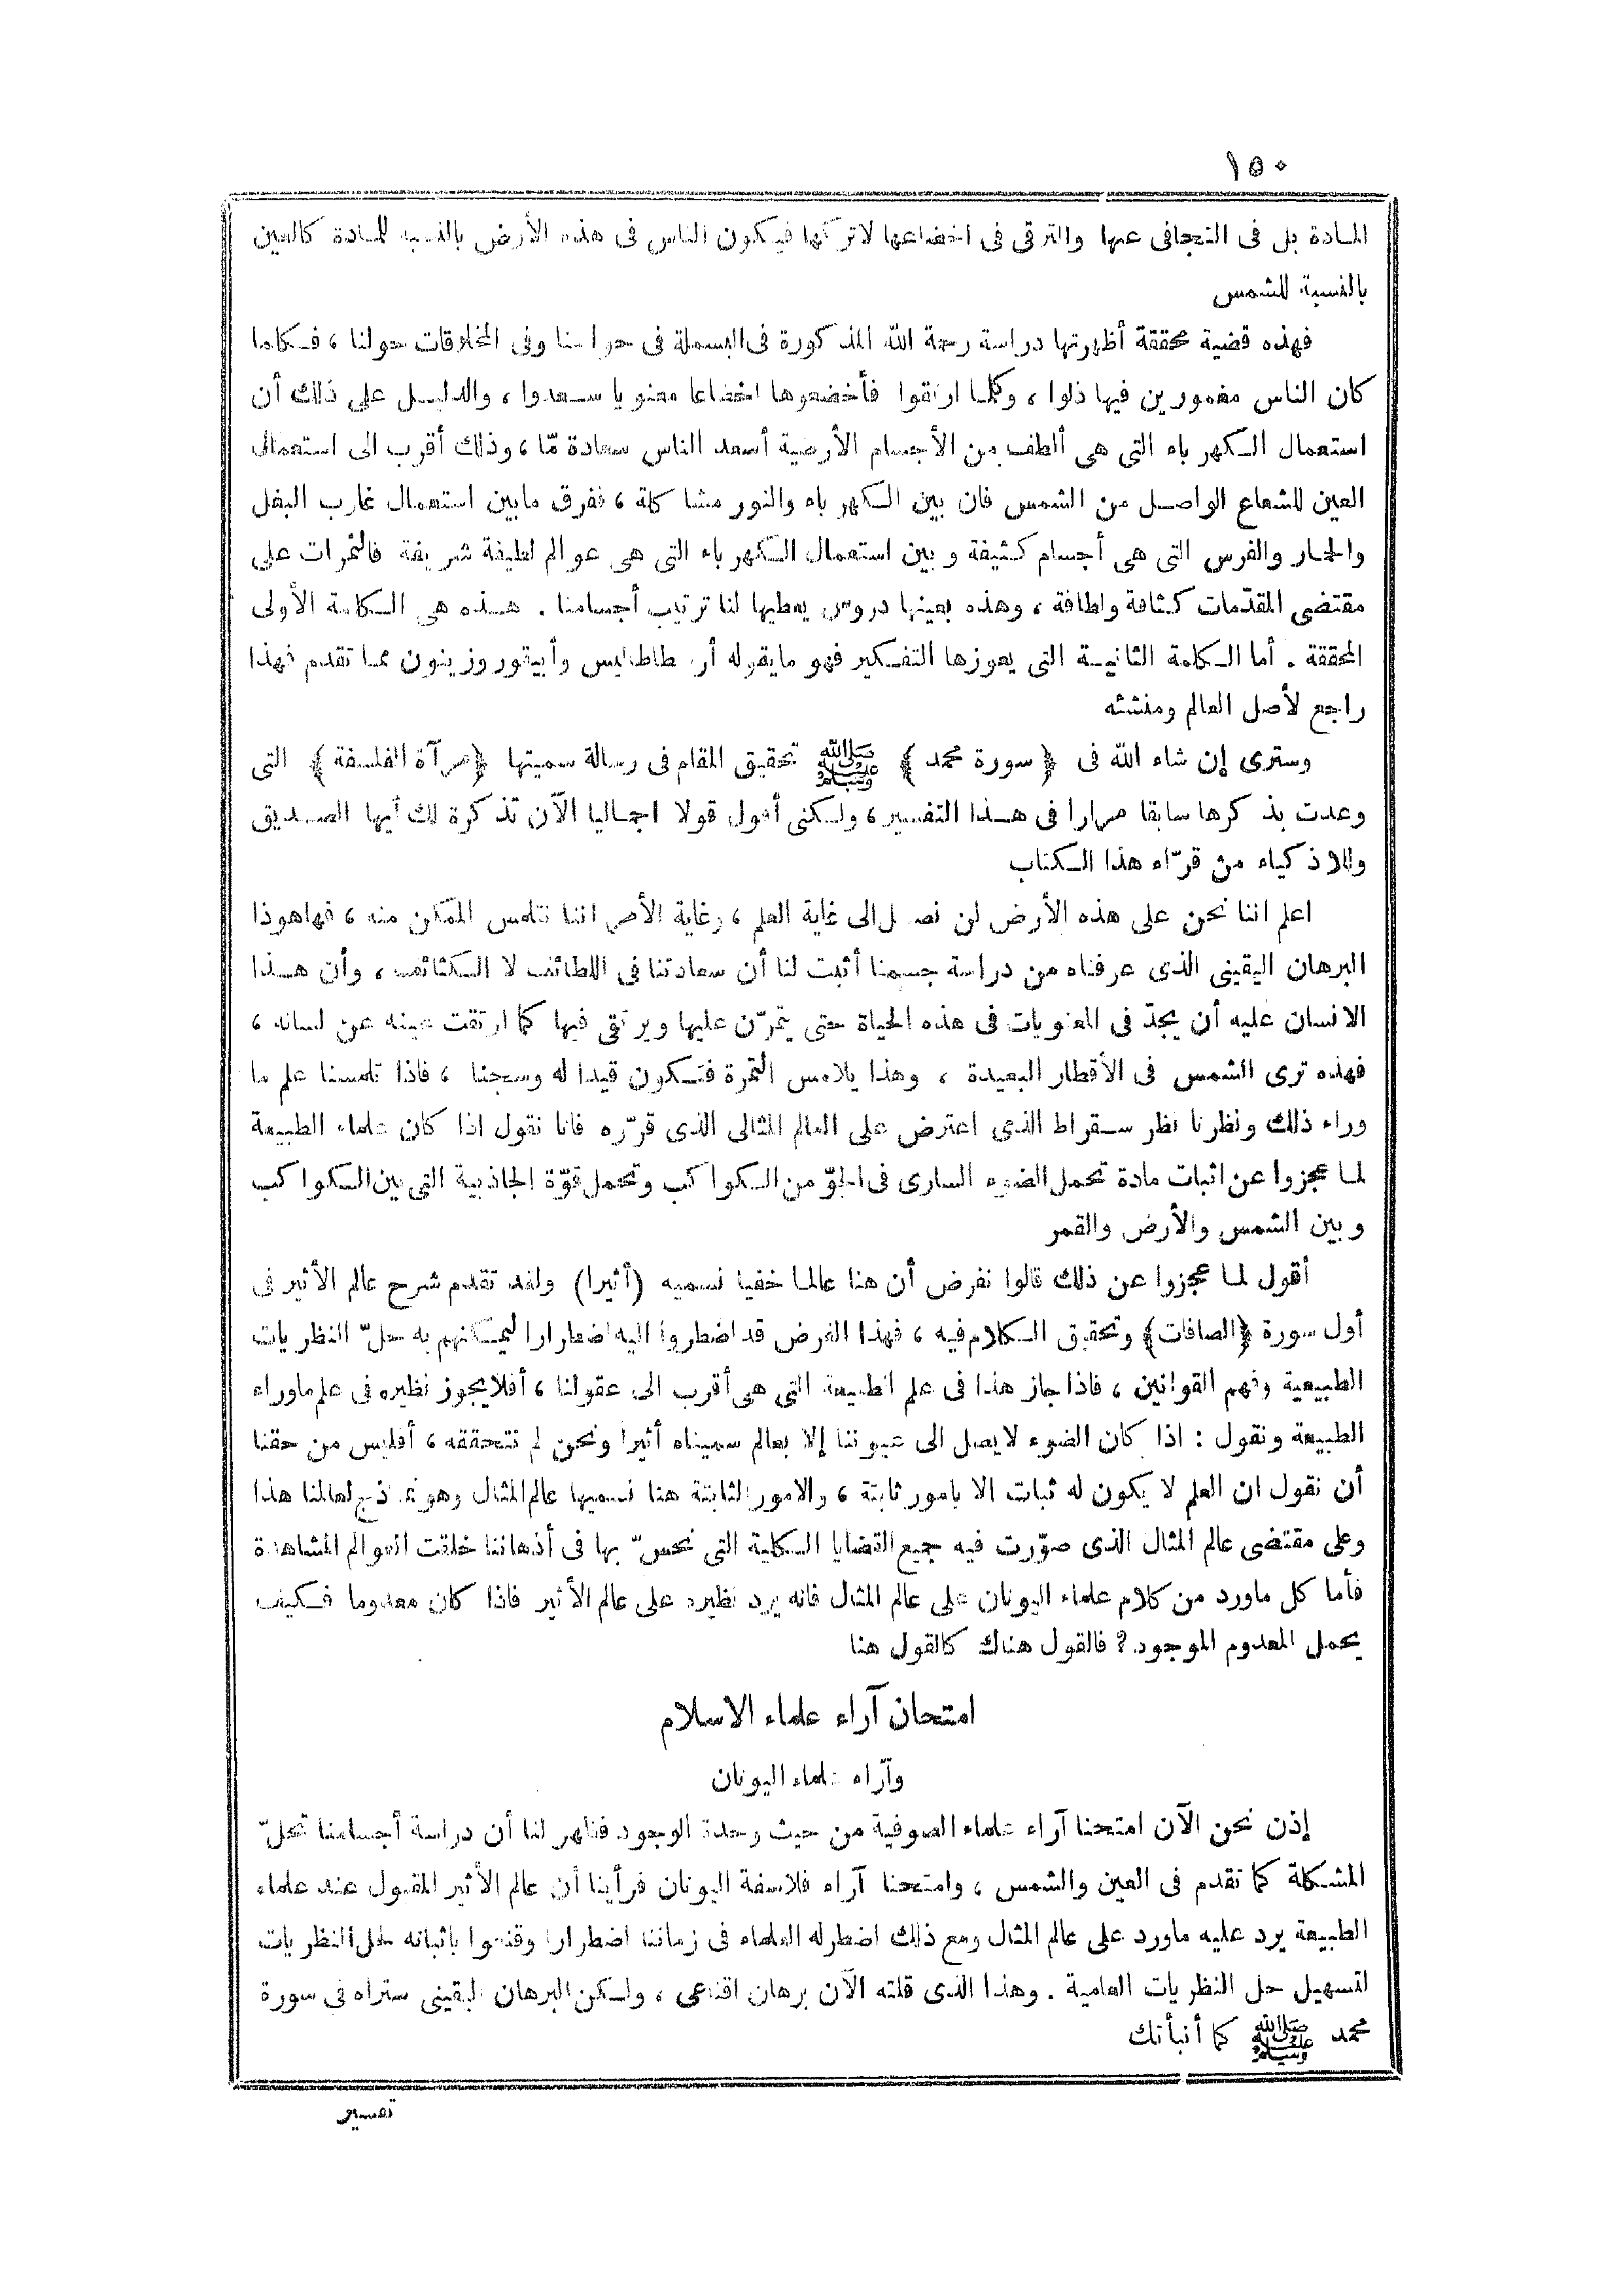 ١٥٠
المادة بل فى التجافى عنها والترقى فى اخضاعها لاتركها فيكون الناس فى هذه الأرض بالنسبة للمادة كالعين
بالنسبة للشمس
فهذه قضية محققة أظهرتها دراسة رحمة الله المذكورة فى البسملة فى حواسنا وفى المخلوقات حولنا ، فكلما
كان الناس مغمورين فيها ذلوا ، وكلما ارتقوا فأخضعوها اخضاعا معنويا سعدوا ، والدليل على ذلك أن
استعمال الكهرباء التى هى ألطف من الأجسام الأرضية أسعد الناس سعادة مّا ، وذلك أقرب الى استعمال
العين للشعاع الواصل من الشمس فان بين الكهرباء والنور مشاكلة ، ففرق مابين استعمال غارب البغل
والحمار والفرس التى هى أجسام كثيفة وبين استعمال الكهرباء التى هى عوالم لطيفة شريفة فالثمرات على
مقتضى المقدّمات كثافة ولطافة ، وهذه بعينها دروس يعطيها لنا ترتيب أجسامنا . هذه هى الكلمة الأولى
المحققة . أما الكلمة الثانية التى يعوزها التفكير فهو مايقوله أرسطاطاليس وأبيقور وزينون مما تقدم فهذا
راجع لأصل العالم ومنشئه
وسترى إن شاء الله فى ﴿سورة محمد﴾ ﷺ تحقيق المقام فى رسالة سميتها ﴿مرآة الفلسفة﴾ التى
وعدت بذكرها سابقا مرارا فى هذا التفسير ، ولكنى أقول قولا اجماليا الآن تذكرة لك أيها الصديق
وللاذكياء من قرّاء هذا الكتاب
اعلم اننا نحن على هذه الأرض لن نصل الى غاية العلم ، وغاية الأمر اننا نتلمس الممكن منه ، فهاهوذا
البرهان اليقينى الذى عرفناه من دراسة جسمنا أثبت لنا أن سعادتنا فى اللطائف لا الكثائف ، وأن هذا
الانسان عليه أن يجدّ فى المعنويات فى هذه الحياة حتى يتمرّن عليها ويرتقى فيها كما ارتقت عينه عن لسانه ،
فهذه ترى الشمس فى الأقطار البعيدة ، وهذا يلامس الثمرة فتكون قيدا له وسجنا ، فاذا تلمسنا علم ما
وراء ذلك ونظرنا نظر سقراط الذى اعترض على العالم المثالى الذى قرّره فانا نقول اذا كان علماء الطبيعة
لما عجزوا عن اثبات مادة تحمل الضوء السارى فى الجوّ من الكواكب وتحمل قوّة الجاذبية التى بين الكواكب
وبين الشمس والأرض والقمر
أقول لما عجزوا عن ذلك قالوا نفرض أن هنا عالما خفيا نسميه (أثيرا) ولقد تقدم شرح عالم الأثير فى
أول سورة ﴿الصافات﴾ وتحقيق الكلام فيه ، فهذا الفرض قد اضطروا اليه اضطرارا ليمكنهم به حلّ النظريات
الطبيعية وفهم القوانين ، فاذا جاز هذا فى علم الطبيعة التى هى أقرب الى عقولنا ، أفلايجوز نظيره فى علم ماوراء
الطبيعة ونقول : اذا كان الضوء لايصل الى عيوننا إلا بعالم سميناه أثيرا ونحن لم نتحققه ، أفليس من حقنا
أن نقول ان العلم لا يكون له ثبات الا بامور ثابتة ، والامور الثابتة هنا نسميها عالم المثال وهو نموذج لعالمنا هذا
وعلى مقتضى عالم المثال الذى صوّرت فيه جميع القضايا الكلية التى نحسّ بها فى أذهاننا خلقت العوالم المشاهدة
فأما كل ماورد من كلام علماء اليونان على عالم المثال فانه يرد نظيره على عالم الأثير فاذا كان معدوما فكيف
يحمل المعدوم الموجود ؟ فالقول هناك كالقول هنا
امتحان آراء علماء الاسلام
وآراء علماء اليونان
إذن نحن الآن امتحنا آراء علماء الصوفية من حيث وحدة الوجود فظهر لنا أن دراسة أجسامنا تحلّ
المشكلة كما تقدم فى العين والشمس ، وامتحنا آراء فلاسفة اليونان فرأينا أن عالم الأثير المقبول عند علماء
الطبيعة يرد عليه ماورد على عالم المثال ومع ذلك اضطر له العلماء فى زماننا اضطرارا وقنعوا باثباته لحل النظريات
لتسهيل حل النظريات العلمية . وهذا الذى قلته الآن برهان اقناعى ، ولكن البرهان اليقينى ستراه فى سورة
محمد ﷺ كما أنبأتك
تفسير